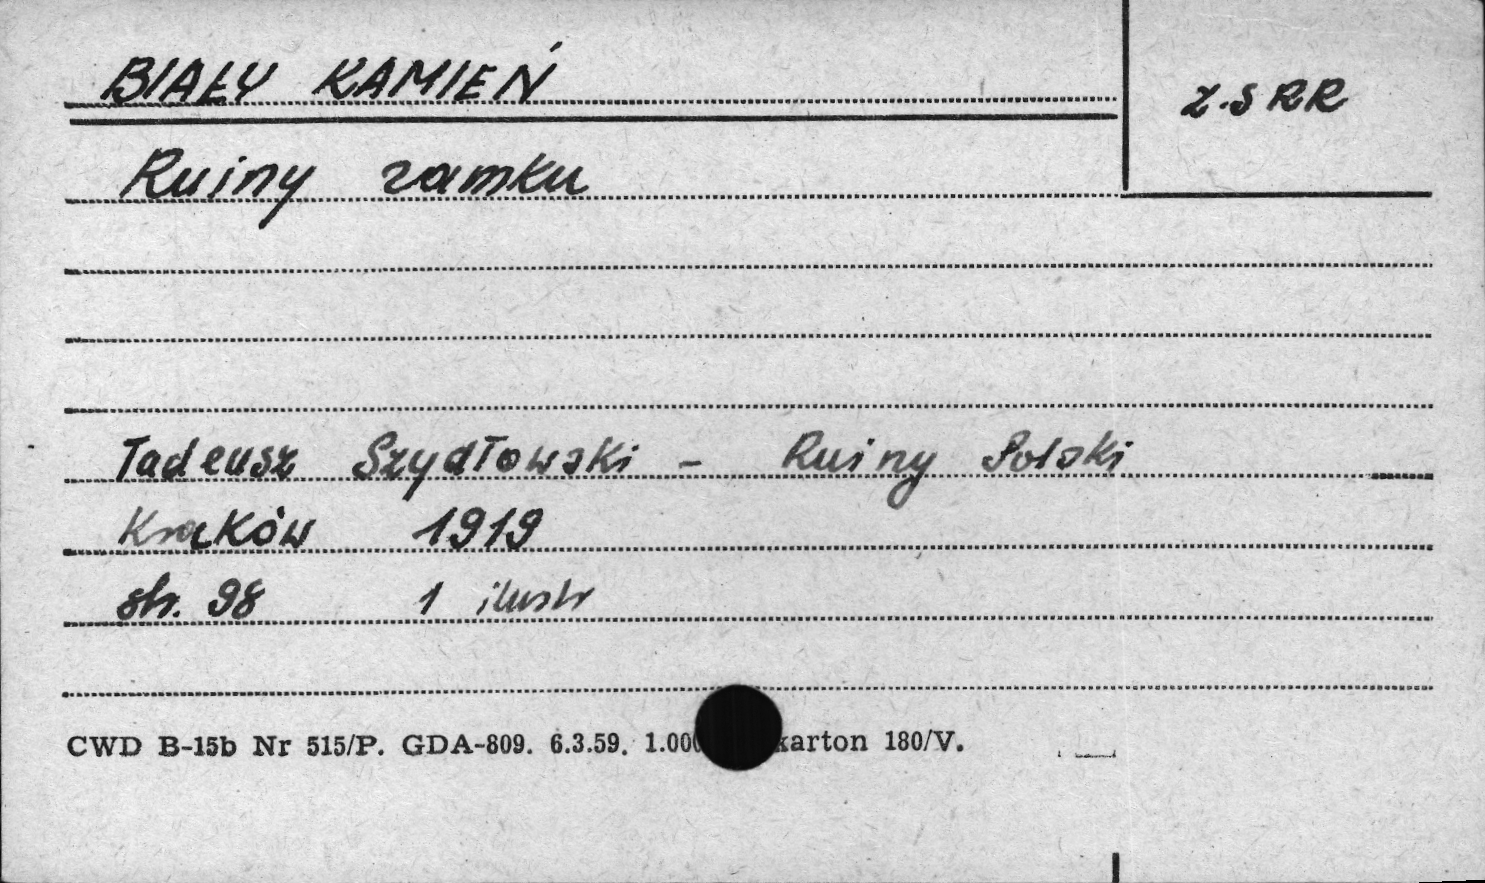 BIAŁY KAMIEŃ
Z.SRR
Ruiny zamku
Tadeusz Szydłowski - Ruiny Polski
Kraków 1919
str. 98 1 ilustr
CWD B-15b Nr 515/P. GDA-809. 6.3.59. 1.000 karton 180/V.